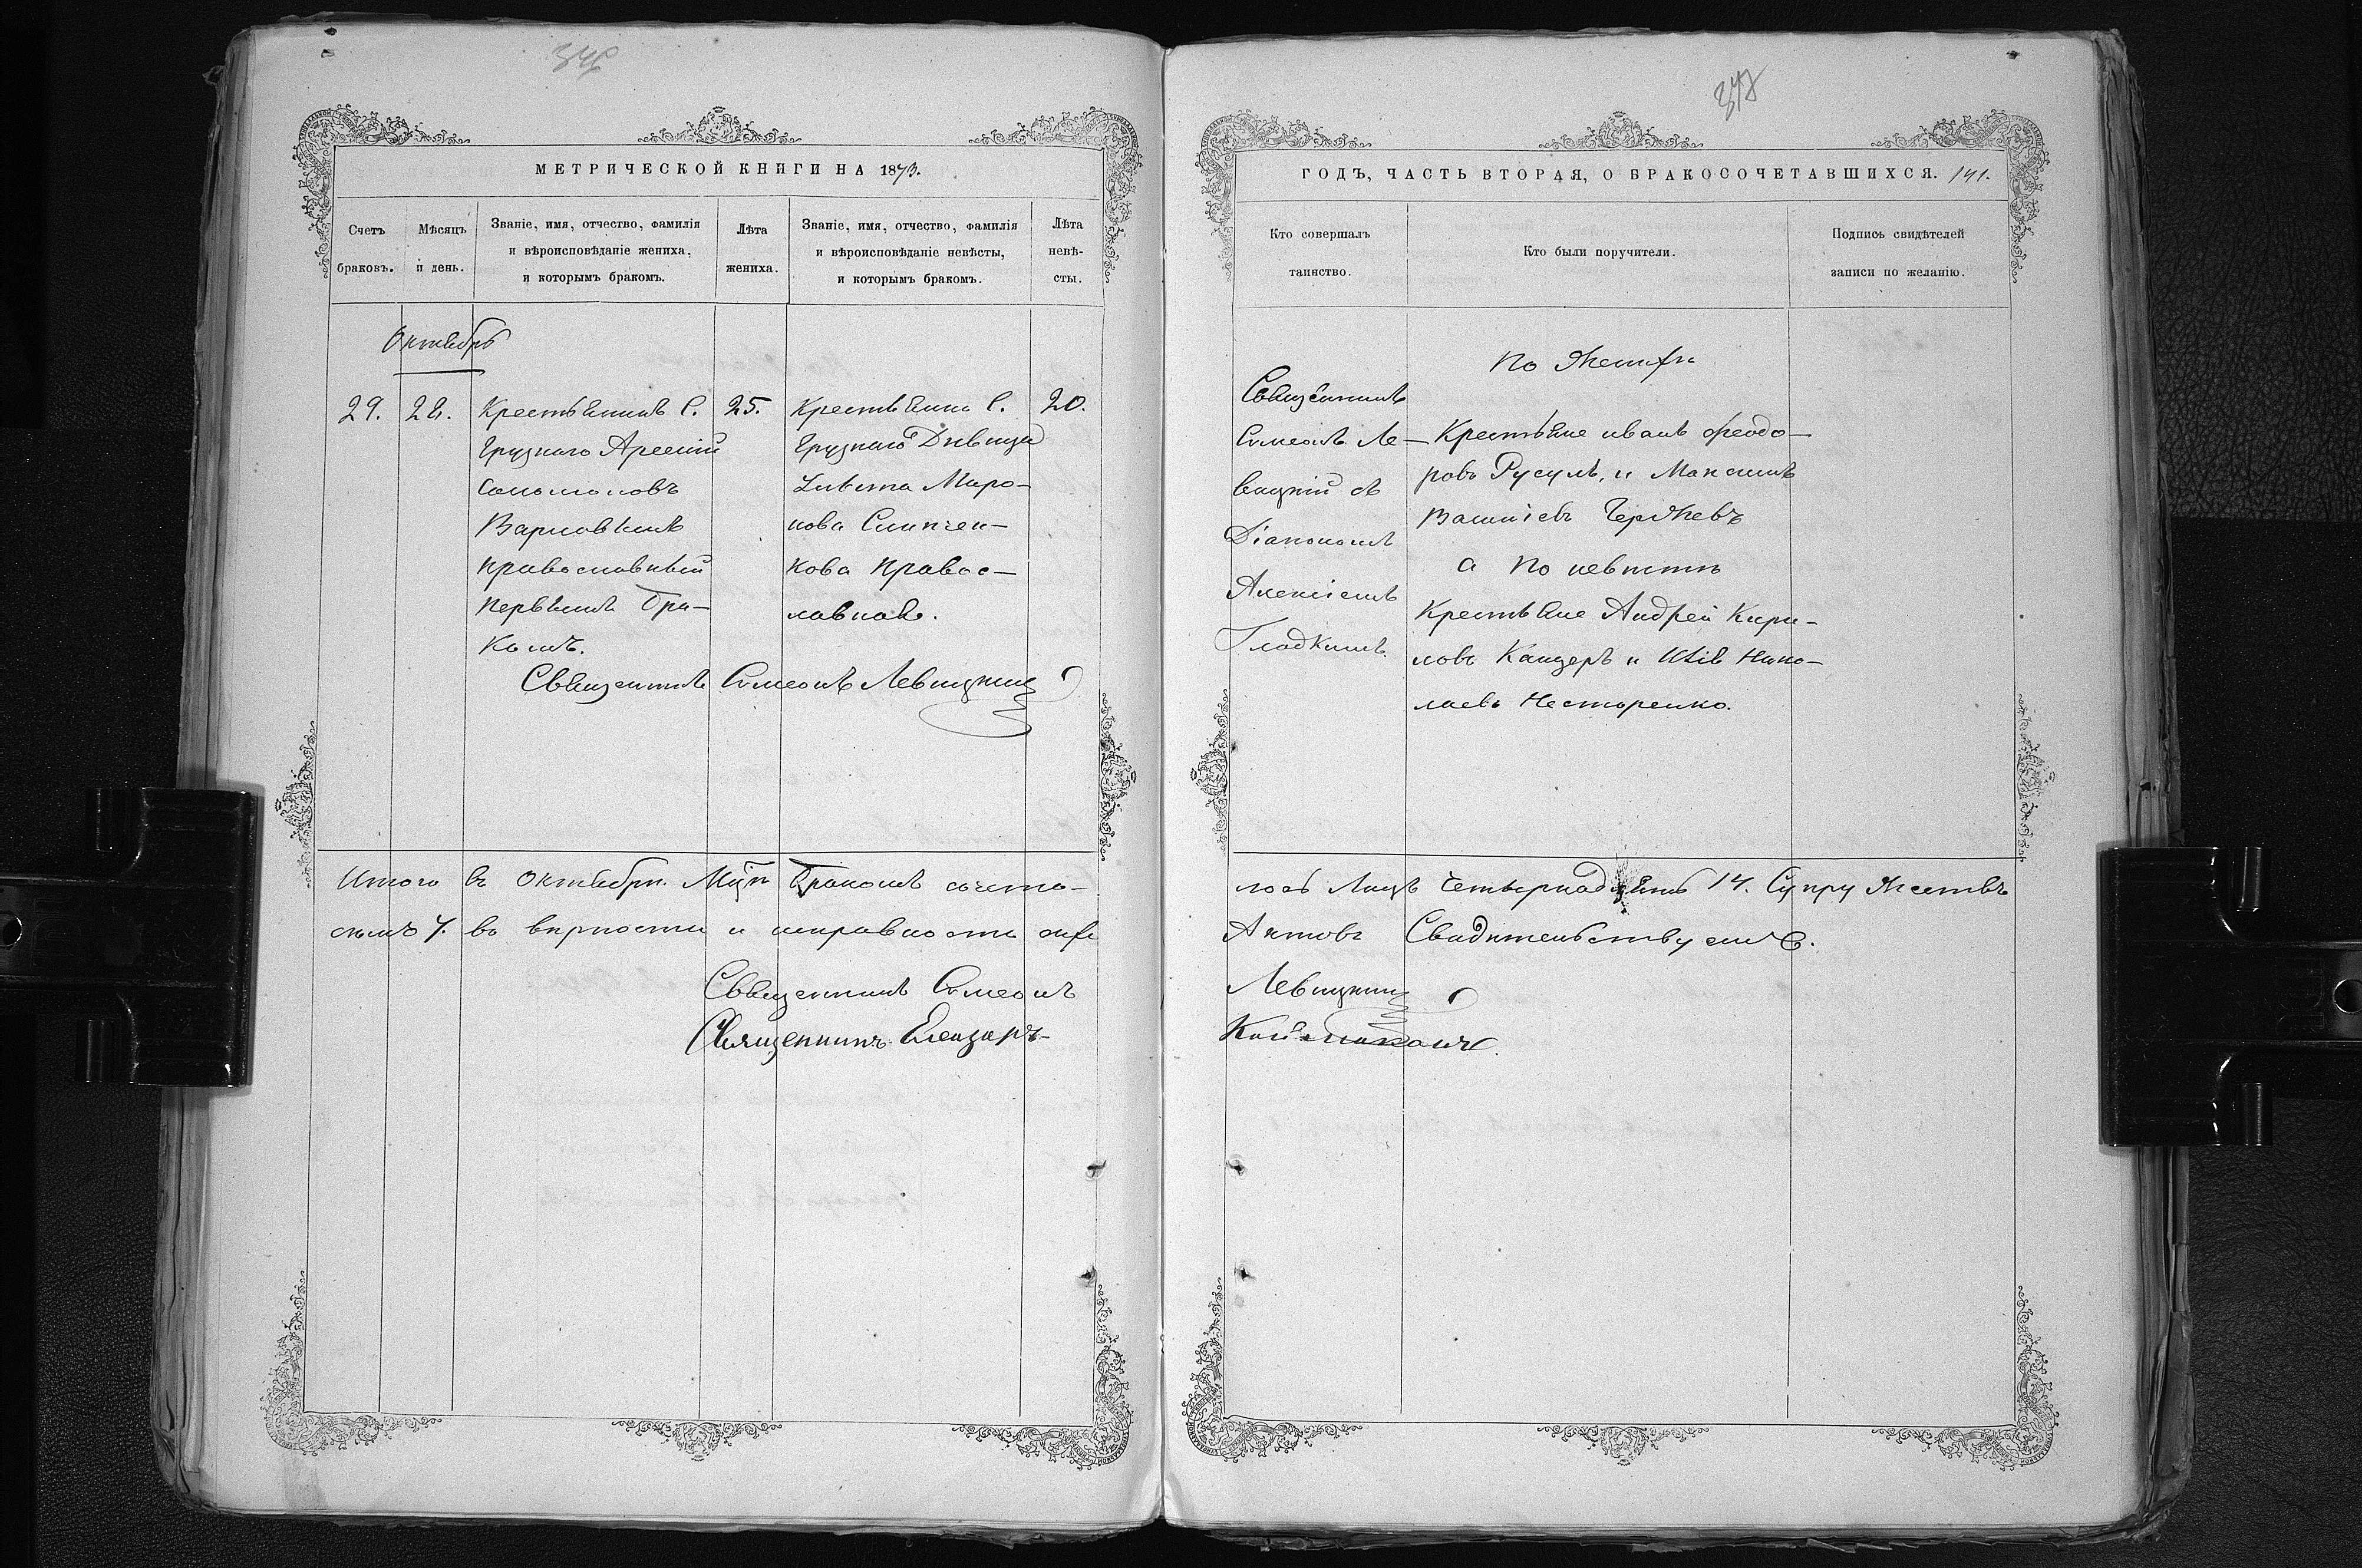 346
347
МЕТРИЧЕСКОЙ КНИГИ НА 1873.
Счетъ браковъ.
Мѣсяцъ и день.
Званіе, имя, отчество, фамилія
и вѣроисповѣданіе жениха,
и которымъ бракомъ.
Лѣта
жениха.
Званіе, имя, отчество, фамилія
и вѣроисповѣданіе невѣсты,
и которымъ бракомъ.
Лѣта
невѣ-
сты.
Октябрь
29.
28.
Крестьянинъ С.
Грузкаго Арсеній
Соломоновъ
православный
первымъ бра-
комъ.
25.
Крестьянка С.
Грузкаго Дѣвица
Миро-
нова Слипчен-
кова Правос-
лавная.
20.
Священникъ Симеонъ Левицкий
Итого въ Октябрѣ Мцѣ Бракомъ сочета-
въ вѣрности и исправности сихъ
Священникъ Симеонъ
Священникъ Елеазаръ
ГОДЪ, ЧАСТЬ ВТОРАЯ, О БРАКОСОЧЕТАВШИХСЯ. 141.
Кто совершалъ
таинство.
Кто были поручители.
Подпись свидѣтелей
записи по желанію.
Священникъ
Симеонъ Ле-
вицкій съ
Діакономъ
Алексіемъ
Гладкимъ.
По Женихѣ
Крестьяне Иванъ Феодо-
ровъ Русулъ, и Максимъ
а По невѣстѣ
Крестьяне Андрей Кири-
ловъ Канцеръ и Нико-
лаевъ Нестеренко.
лось Лицъ четырнадцать 14. Супружествъ
Актовъ Свидѣтельствуемъ С.
Левицкий